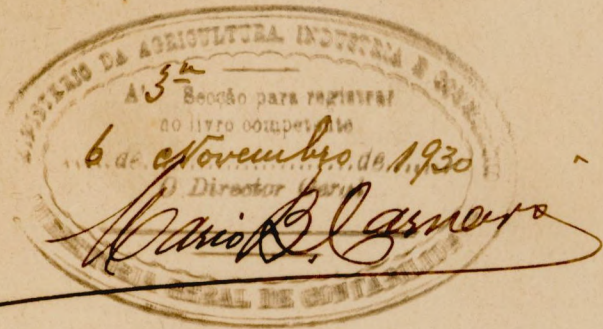 MINISTERIO DA AGRICULTURA, INDUSTRIA E COMMERCIO
A' 3ª Secção para registrar
no livro competente
6 de Novembro de 1930
O Director Geral
Mario B. Carneiro
DIRECTORIA GERAL DE CONTABILIDADE